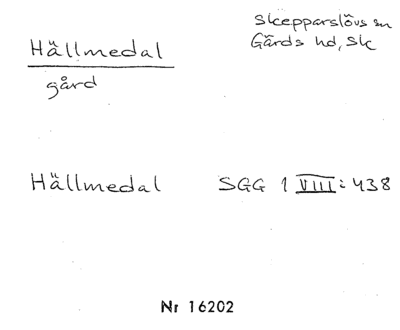 Hällmedal
gård
Skepparslövs sn
Gärds hd, Sk
Hällmedal SGG 1 VIII:438
Nr 16202